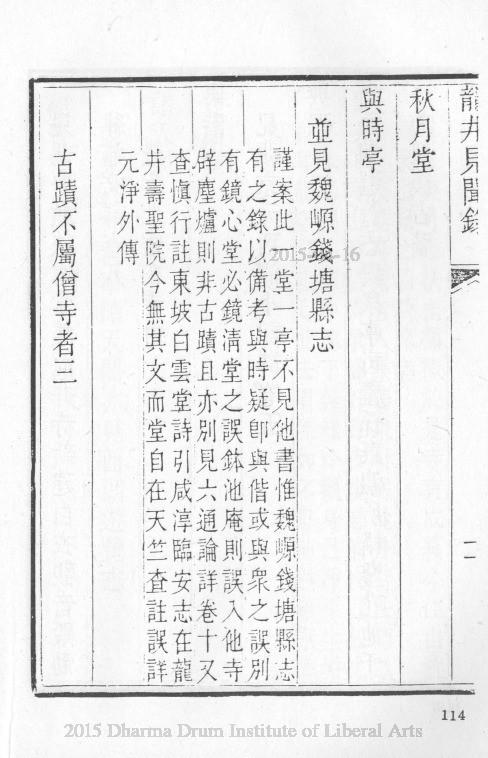 龍井見聞錄
一一
秋月堂
與時亭
並見魏㟲錢塘縣志
謹案此一堂一亭不見他書惟魏㟲錢塘縣志
有之錄以備考與時疑卽與偕或與衆之誤別
有鏡心堂必鏡清堂之誤鉢池庵則誤入他寺
辟塵爐則非古蹟且亦別見六通論詳卷十又
查愼行註東坡白雲堂詩引咸淳臨安志在龍
井壽聖院今無其文而堂自在天竺查註誤詳
元淨外傳
古蹟不屬僧寺者三
114
2015 Dharma Drum Institute of Liberal Arts